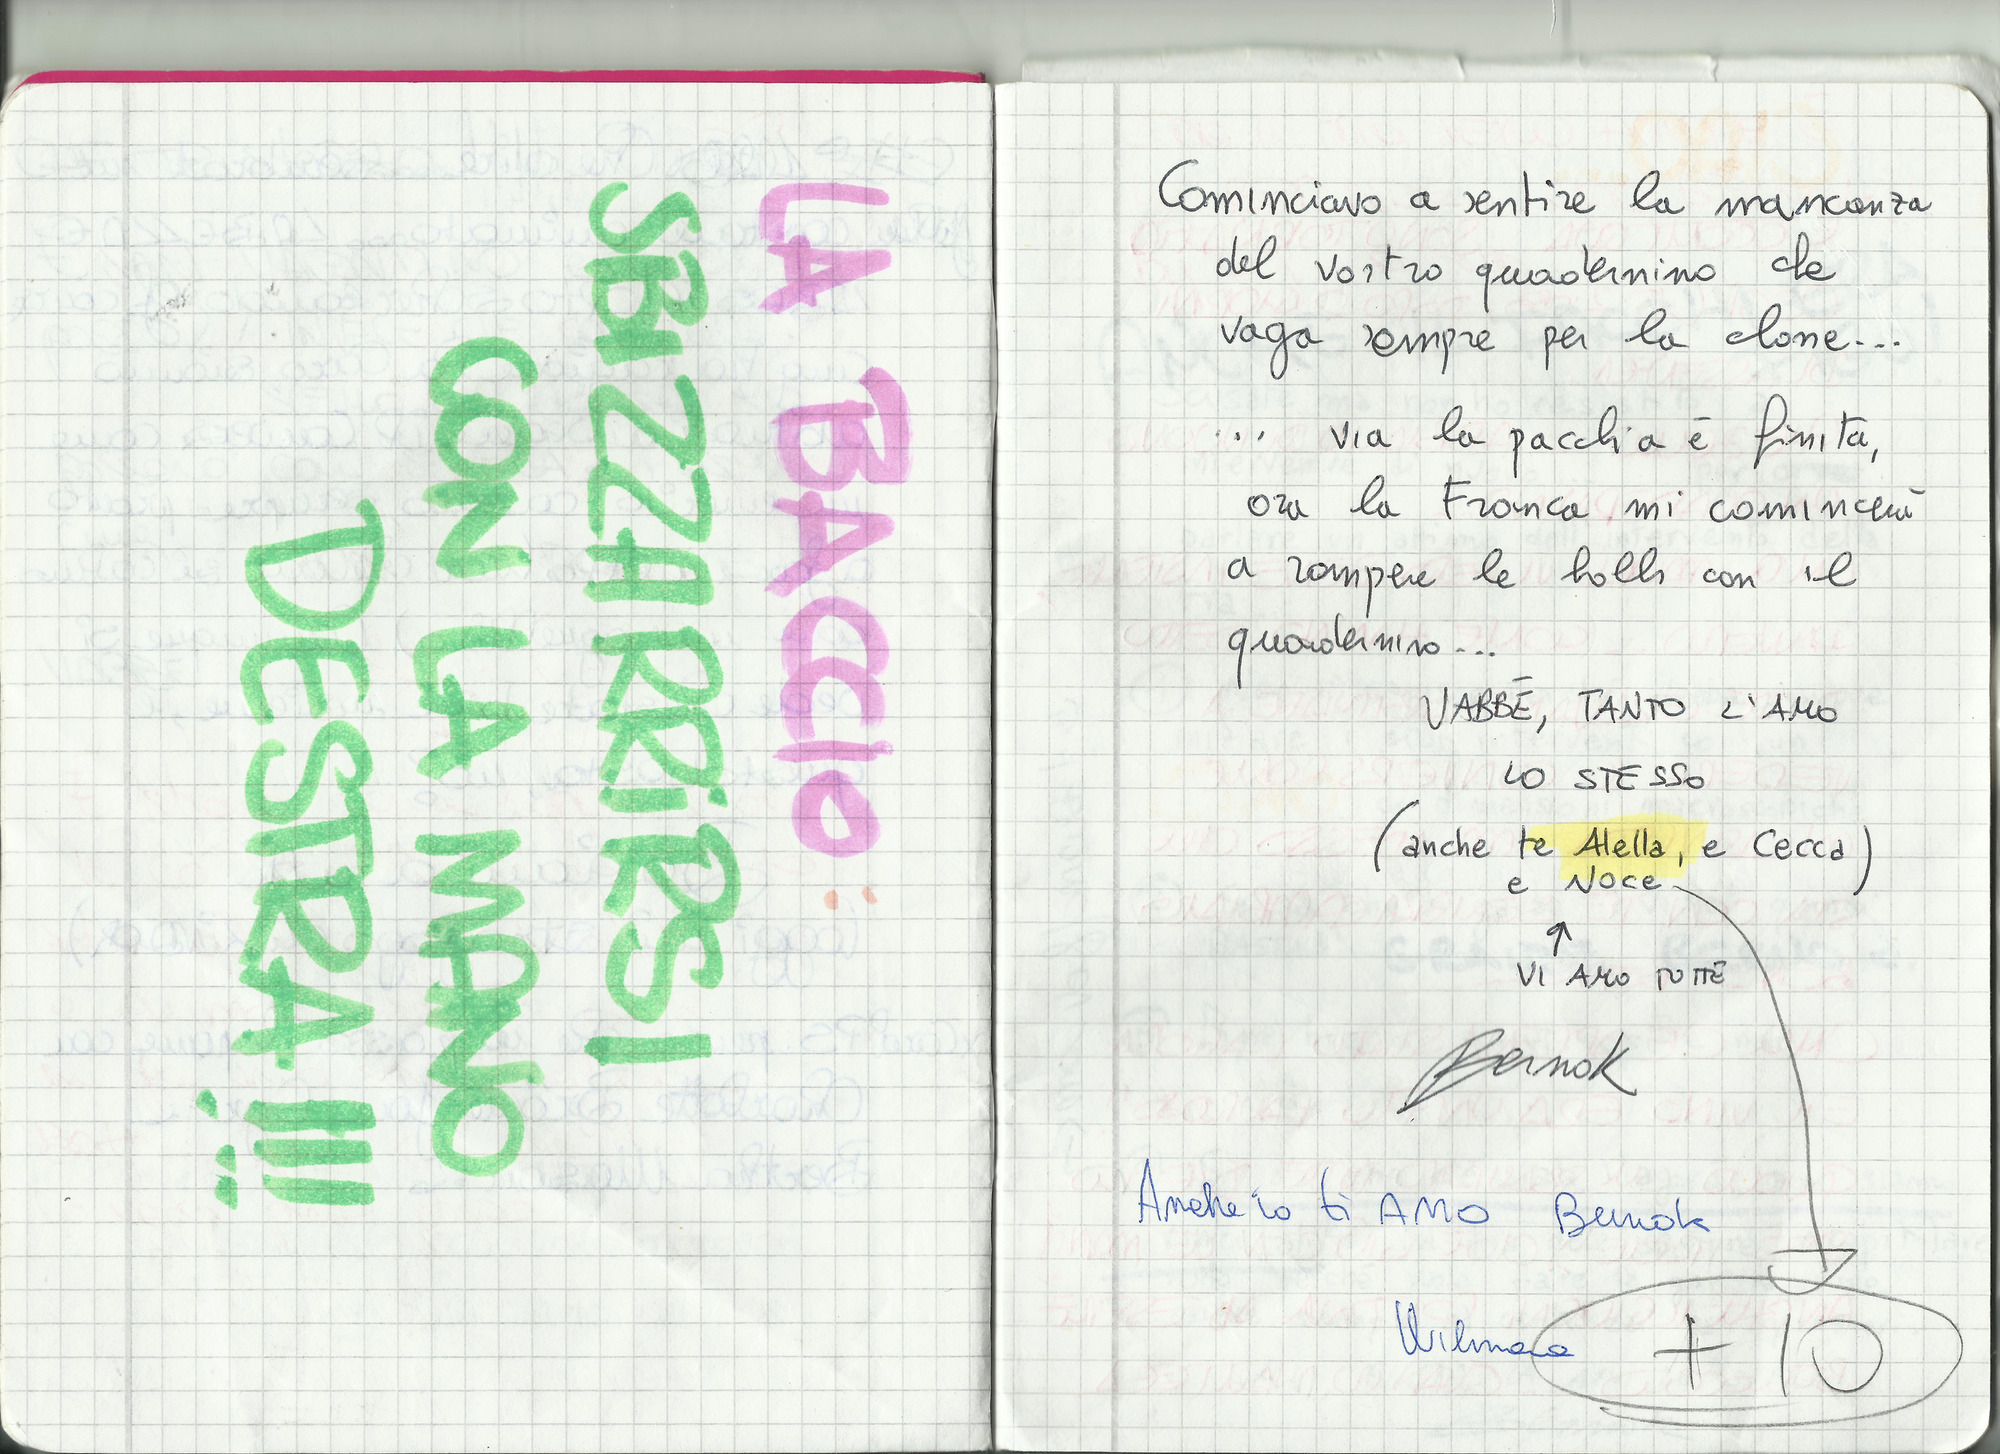 LA BACCIO:
SBIZZARRIRSI
CON LA MANO
DESTRA!!!
Cominciavo a sentire la mancanza
del vostro quadernino che
vaga sempre per la classe...
... via la pacchia è finita,
ora la Franca mi comincerà
a rompere le balls con il
quadernino...
VABBÈ, TANTO L'AMO
LO STESSO
(anche te Alella, e Cecca)
e Noce
↑
VI AMO TUTTE
Bernok
Anche io ti AMO Bernok
Wilmaa
+10